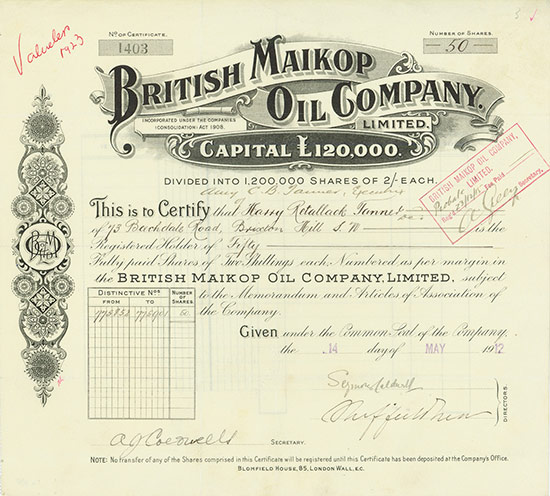 Valueless
1923
No OF CERTIFICATE.
1403
NUMBER OF SHARES.
50
BRITISH MAIKOP
OIL COMPANY.
LIMITED.
INCORPORATED UNDER THE COMPANIES
(CONSOLIDATION) ACT 1908.
CAPITAL £120,000.
DIVIDED INTO 1,200,000 SHARES OF 2/- EACH.
BRITISH MAIKOP OIL COMPANY,
LIMITED.
Probate
Fee Paid
Secretary.
This is to Certify that Harry Retallack
of 73 Road, Brixton Hill S.W. is the
Registered Holder of Fifty
Fully paid Shares of Two Shillings each, Numbered as per margin in
the BRITISH MAIKOP OIL COMPANY, LIMITED, subject
to the Memorandum and Articles of Association of
the Company.
DISTINCTIVE Nos
FROM TO
NUMBER OF SHARES
50
Given under the Common Seal of the Company,
the 14 day of MAY 1912
DIRECTORS.
SECRETARY.
NOTE: No transfer of any of the Shares comprised in this Certificate will be registered until this Certificate has been deposited at the Company's Office.
BLOMFIELD HOUSE, 85, LONDON WALL, E.C.